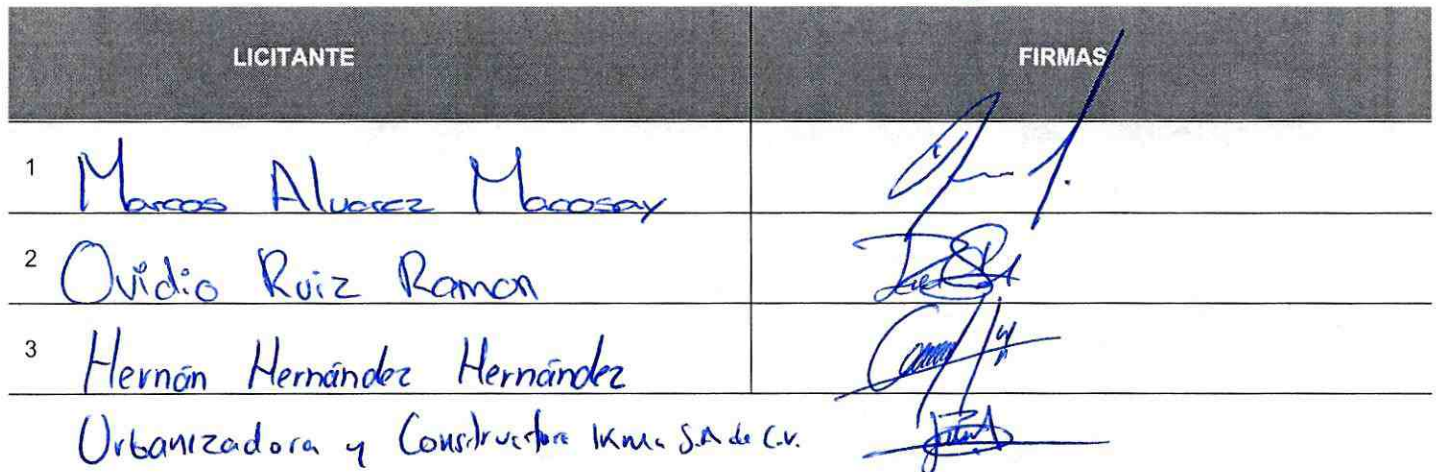 LICITANTE FIRMAS
1 Marcos Alvarez Macosay
2 Ovidio Ruiz Ramon
3 Hernán Hernández Hernández
Urbanizadora y Constructora S.A de C.V.